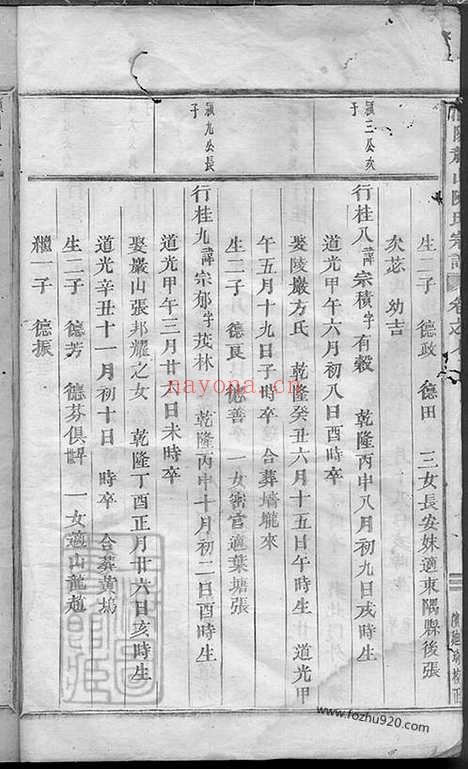 陳氏宗譜 卷之
生二子 德政 德田 三女長安妹適東隅縣後張
次苾 幼吉
顯三公次子
行桂八諱宗積字有穀 乾隆丙申八月初九日戌時生
道光甲午六月初八日酉時卒
娶陵巖方氏 乾隆癸丑六月十五日午時生 道光甲
午五月十九日子時卒 合葬墻壠來
生二子 德良 德善 一女密官適葉塘張
顯九公長子
行桂九諱宗郁字茂林 乾隆丙申十月初二日酉時生
道光甲午三月廿六日未時卒
娶巖山張邦耀之女 乾隆丁酉正月廿六日亥時生
道光辛丑十一月初十日 時卒 合葬黃塢
生二子 德芳 德芬俱殤 一女適山龍趙
繼一子 德振
nayona.cn
www.fozhu920.com